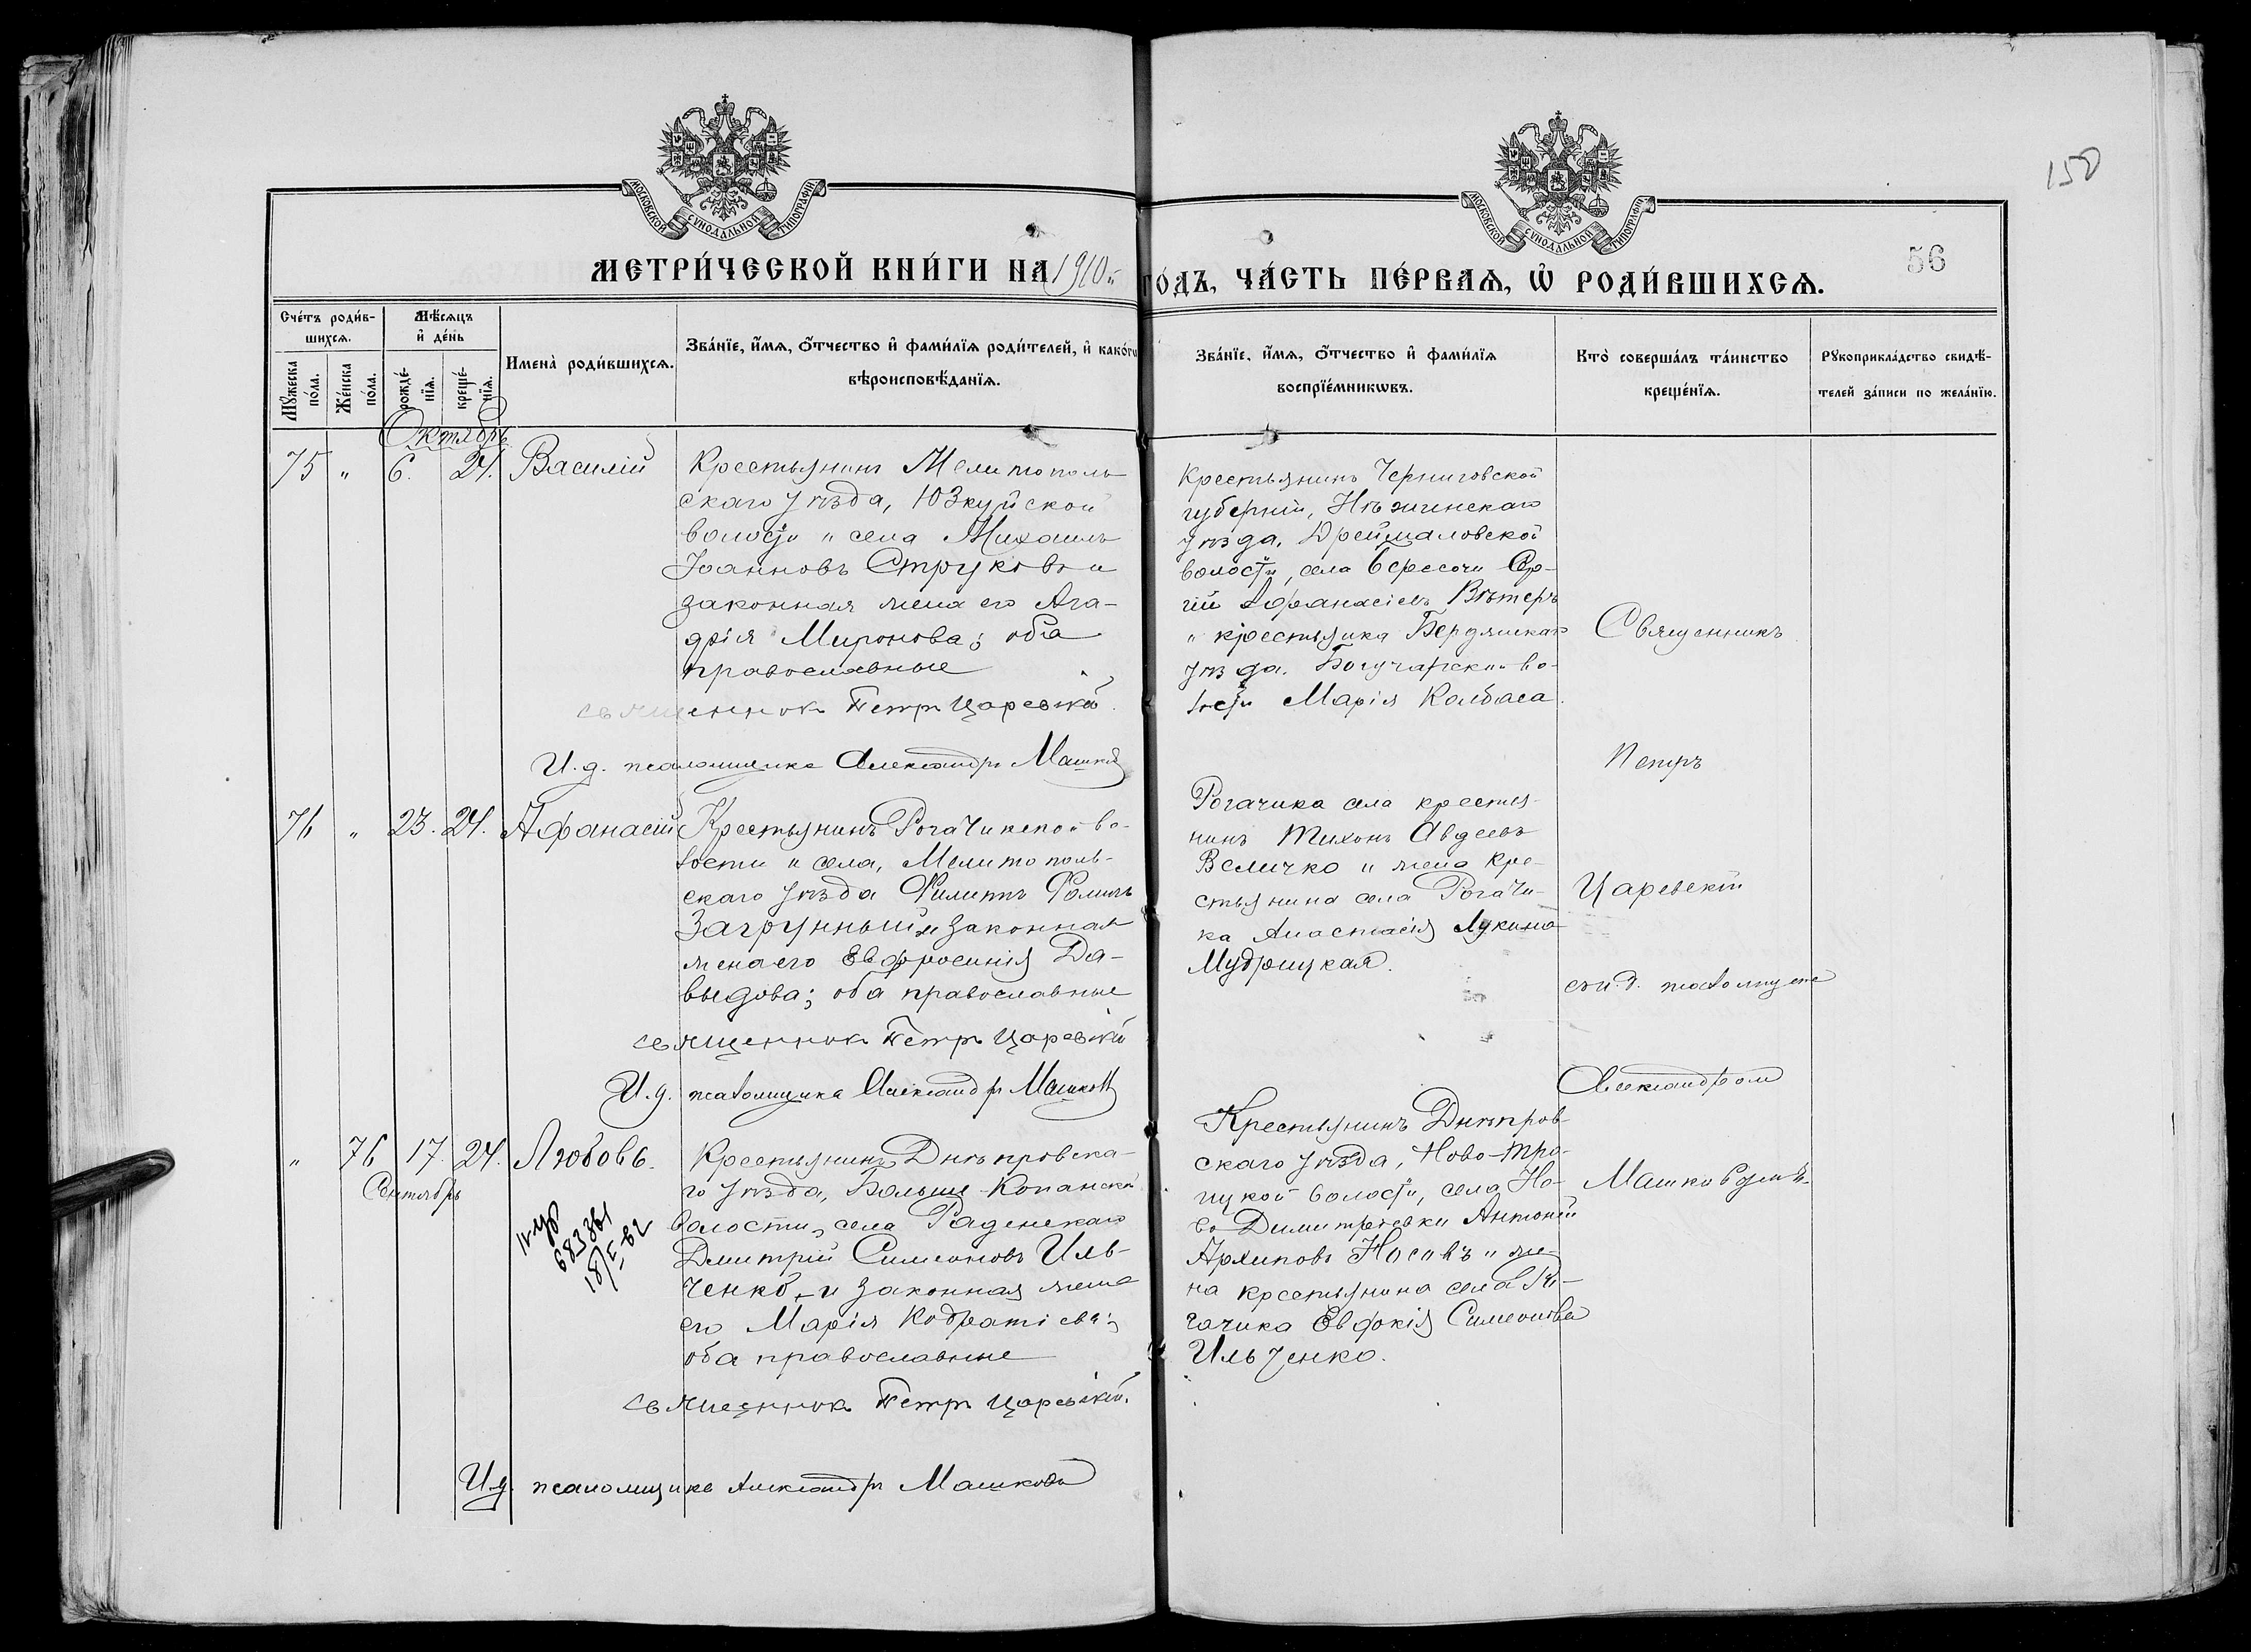 150
56
МОСКОВСКОЙ СѴНОДАЛЬНОЙ ТИПОГРАФІИ
МОСКОВСКОЙ СѴНОДАЛЬНОЙ ТИПОГРАФІИ
МЕТРИ́ЧЕСКОЙ КНИ́ГИ НА 1910й ГО́ДЪ, ЧА́СТЬ ПЕ́РВАѦ, Ѽ РОДИ́ВШИХСѦ.
Сче́тъ роди́в-
шихсѧ.
Мꙋ́жеска
по́ла.
Же́нска
по́ла.
Мѣ́сѧцъ
и҆ де́нь
рожде́-
нїѧ.
креще́-
нїѧ.
Имена̀ роди́вшихсѧ.
Зва́нїе, и҆́мѧ, ѻ҆́тчество и҆ фами́лїѧ роди́телей, и҆ како́гѡ
вѣроисповѣ́данїѧ.
Зва́нїе, и҆́мѧ, ѻ҆́тчество и҆ фами́лїѧ
воспрїе́мникѡвъ.
Кто̀ соверша́лъ та́инство
креще́нїѧ.
Рꙋкоприкла́дство свидѣ́-
телей за́писи по жела́нїю.
Октябрь
75 " 6. 24. Василій
Крестьянинъ Мелитополь-
скаго уѣзда, Юзкуйской
волости и села Михаилъ
Іоанновъ Струковъ и
законная жена его Ага-
фія Миронова; оба
православные
священник Петръ Царевскій.
И. д. псаломщика Александръ Машковъ
Крестьянинъ Черниговской
губерніи, Нѣжинскаго
уѣзда, Дреймаловской
волости, села Вересочи Сер-
гій Афанасіевъ Вѣтеръ
и крестьянка Бердянскаго
уѣзда. Богучарской во-
лости Марія Колбаса.
Священникъ
Петръ
Царевскій
съ и. д. псаломщика
Александромъ
Машковымъ.
76 " 23. 24. Афанасій
Крестьянинъ Рогачикской во-
лости и села, Мелитополь-
скаго уѣзда Филиппъ Фоминъ
Загрунный и законная
жена его Евфросинія Да-
выдова; оба православные
священник Петръ Царевскій
И. д. псаломщика Александръ Машковъ
Рогачика села крестья-
нинъ Тихонъ Авдеевъ
Величко и жена кре-
стьянина села Рогачи-
ка Анастасія Лукина
Мудрицкая.
" 76 17. 24. Любовь.
Сентябрь
683361
18/I-82
Крестьянинъ Днѣпровска-
го уѣзда, Больше-Копанской
волости, села Раденскаго
Дмитрій Симеоновъ Иль-
ченко, и законная жена
его Марія Кодратіева;
оба православные
священник Петръ Царевскій.
И. д. псаломщика Александръ Машковъ
Крестьянинъ Днѣпров-
скаго уѣзда, Ново-Тро-
ицкой волости, села Но-
во Димитрьевки Антоній
Архиповъ Носикъ и же-
на крестьянина села Ро-
гачика Евфокія Симеонова
Ильченко.